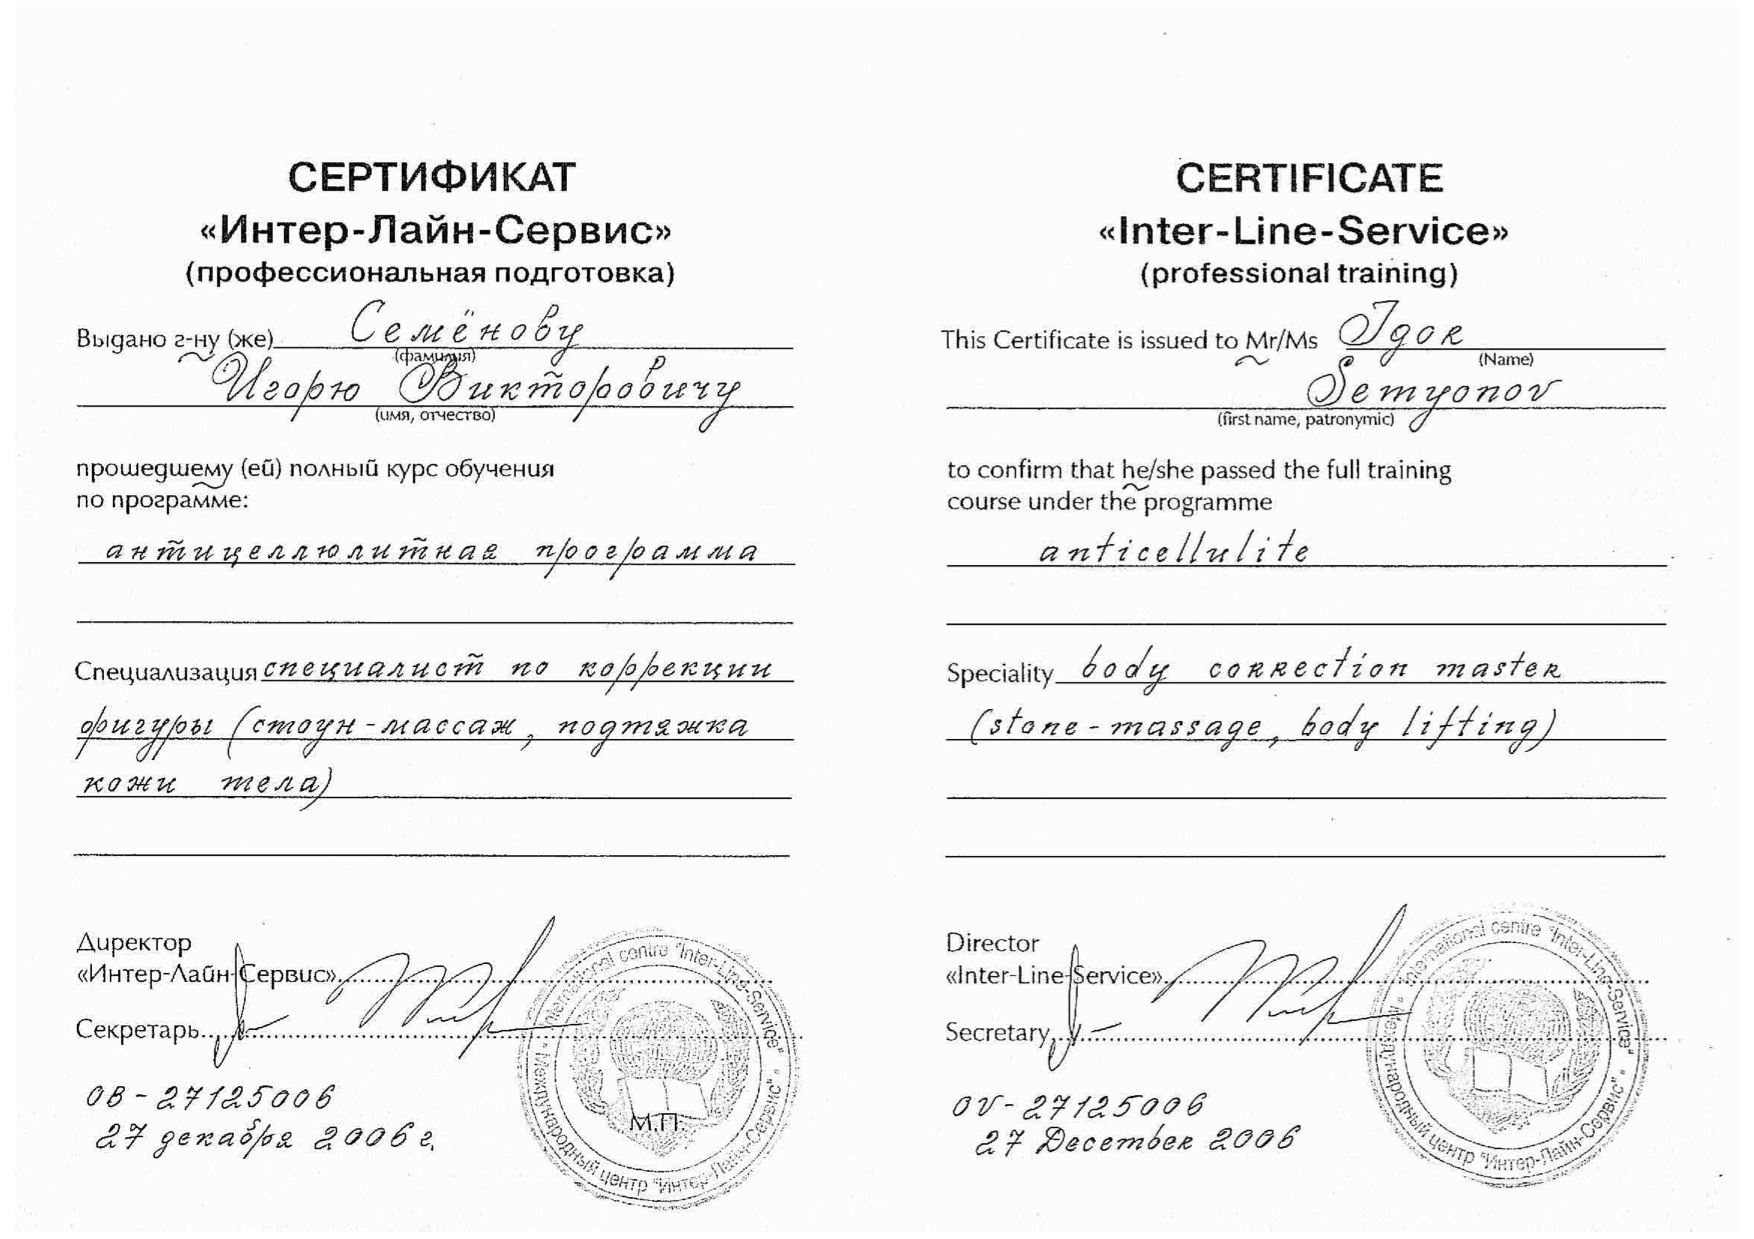 СЕРТИФИКАТ
«Интер-Лайн-Сервис»
(профессиональная подготовка)
Выдано г-ну (же) Семёнову
(фамилия)
Игорю Викторовичу
(имя, отчество)
прошедшему (ей) полный курс обучения
по программе:
антицеллюлитная программа
Специализация специалист по коррекции
фигуры (стоун-массаж, подтяжка
кожи тела)
Директор
«Интер-Лайн-Сервис»
Секретарь
ОВ-27125006
27 декабря 2006 г.
М.П.
International centre "Inter-Line-Service" • Международный центр "Интер-Лайн-Сервис" •
CERTIFICATE
«Inter-Line-Service»
(professional training)
This Certificate is issued to Mr/Ms Igor
(Name)
Semyonov
(first name, patronymic)
to confirm that he/she passed the full training
course under the programme
anticellulite
Speciality body correction master
(stone-massage, body lifting)
Director
«Inter-Line-Service»
Secretary
OV-27125006
27 December 2006
International centre "Inter-Line-Service" • Международный центр "Интер-Лайн-Сервис" •